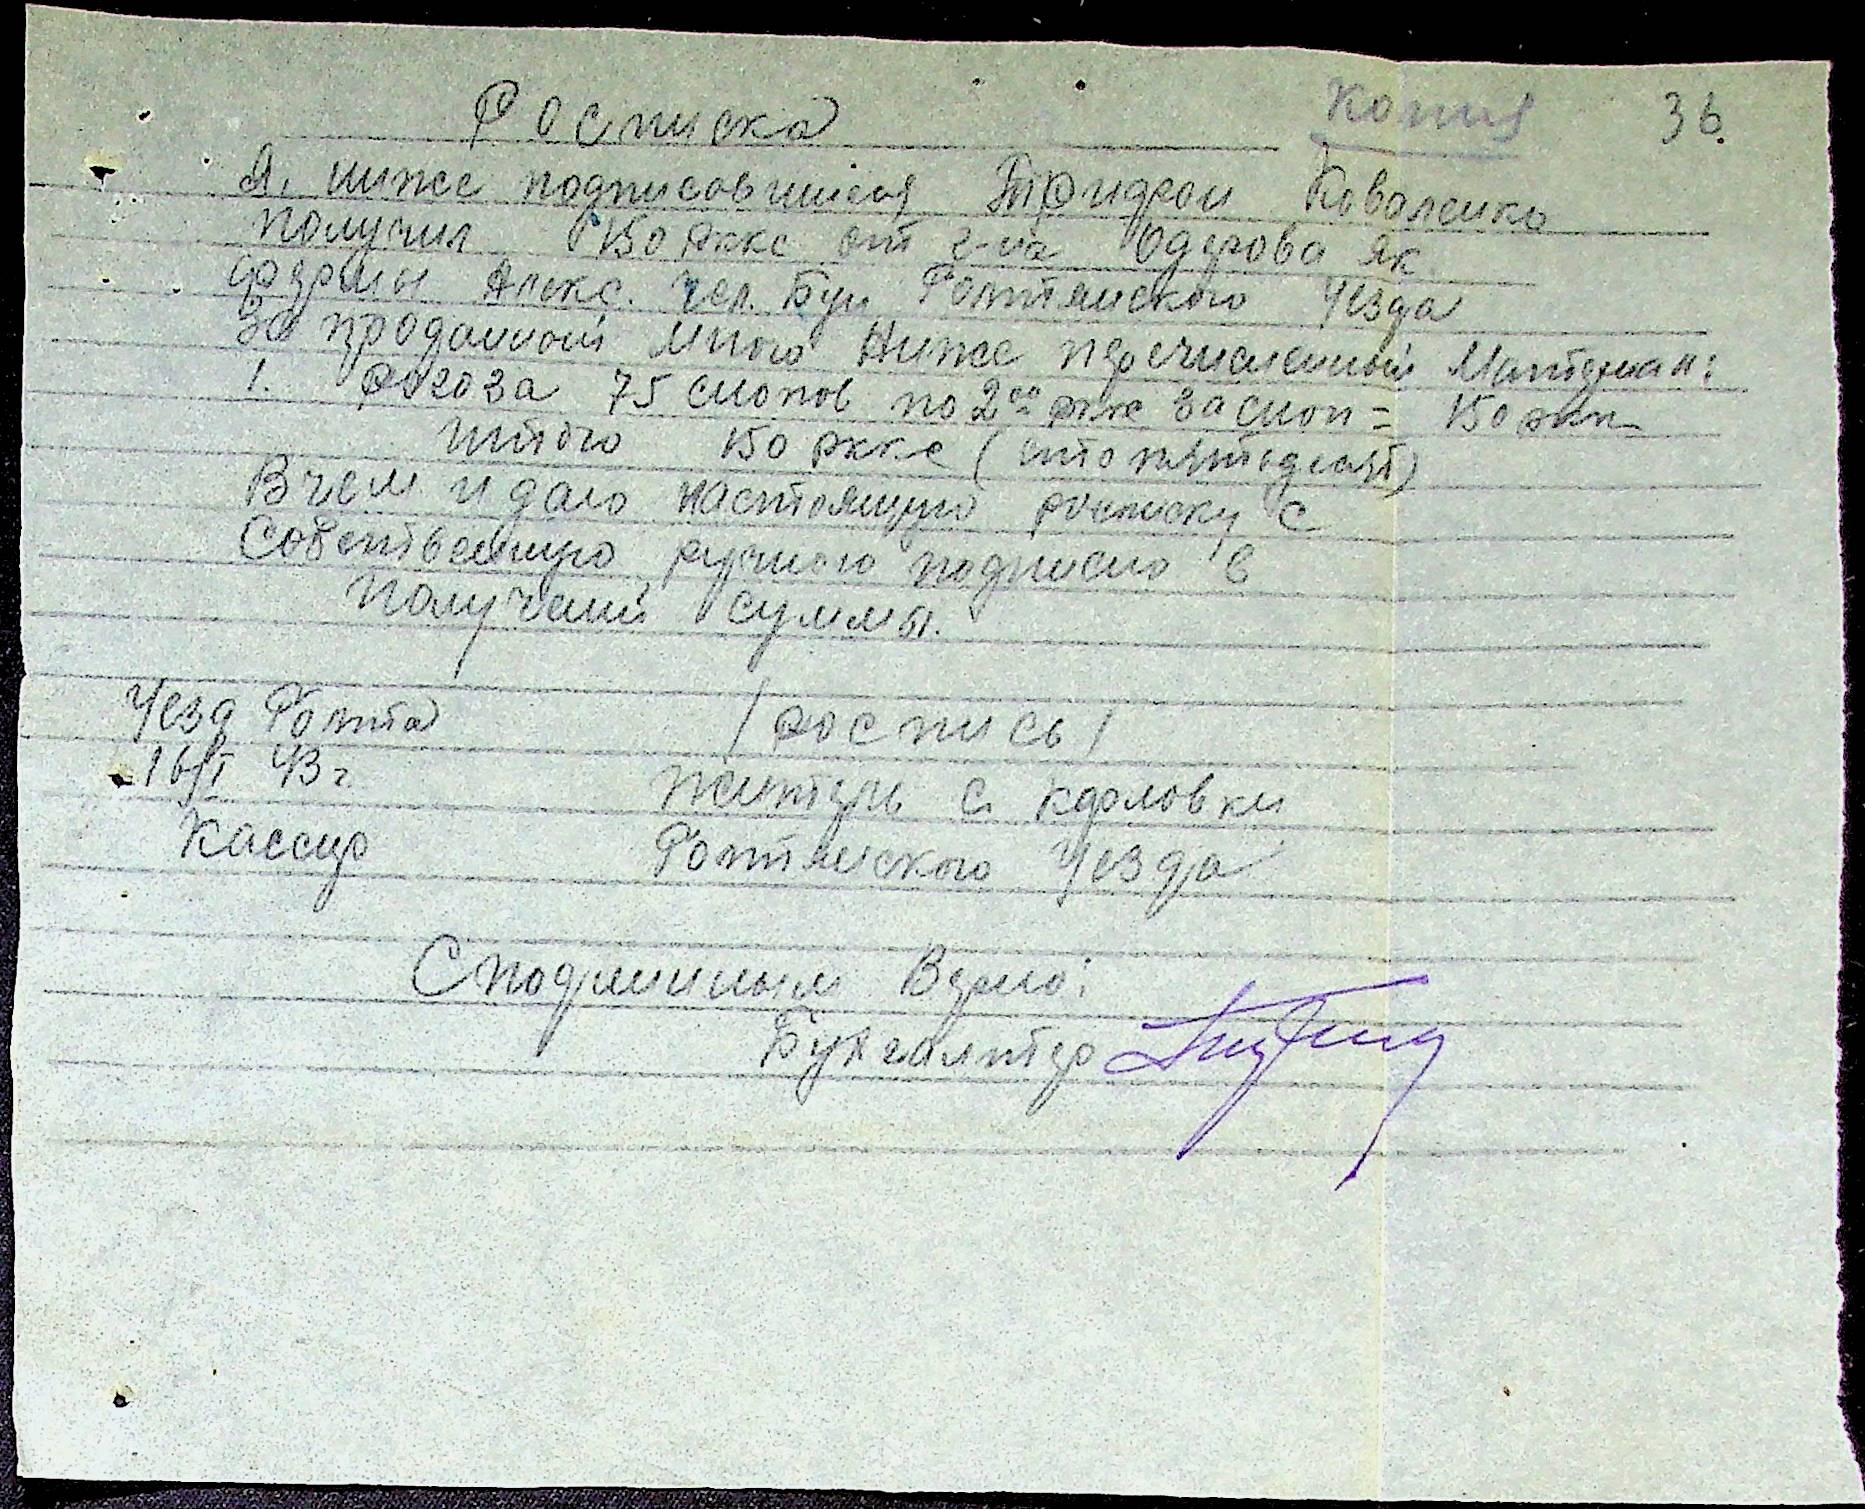 Росписка Копия 36.
Я, ниже подписовшися Трифон Коваленко
получил 150 ркке от г-на Одерова Як.
фермы Алекс. Чел. Бун Голтянского Уезда
За проданной мною Ниже перечисленный Материал:
1. рогоза 75 снопов по 2оо ркк за сноп = 150 ркк
Итого 150 ркке (сто пятьдесят)
В чем и даю настоящую росписку с
Собственную ручною подписью в
получении суммы.
Уезд Голта /роспись/
16/I 43 г. житель с. Кароловки
Кассир Голтянского Уезда
С подлинным Верно:
Бухгалтер